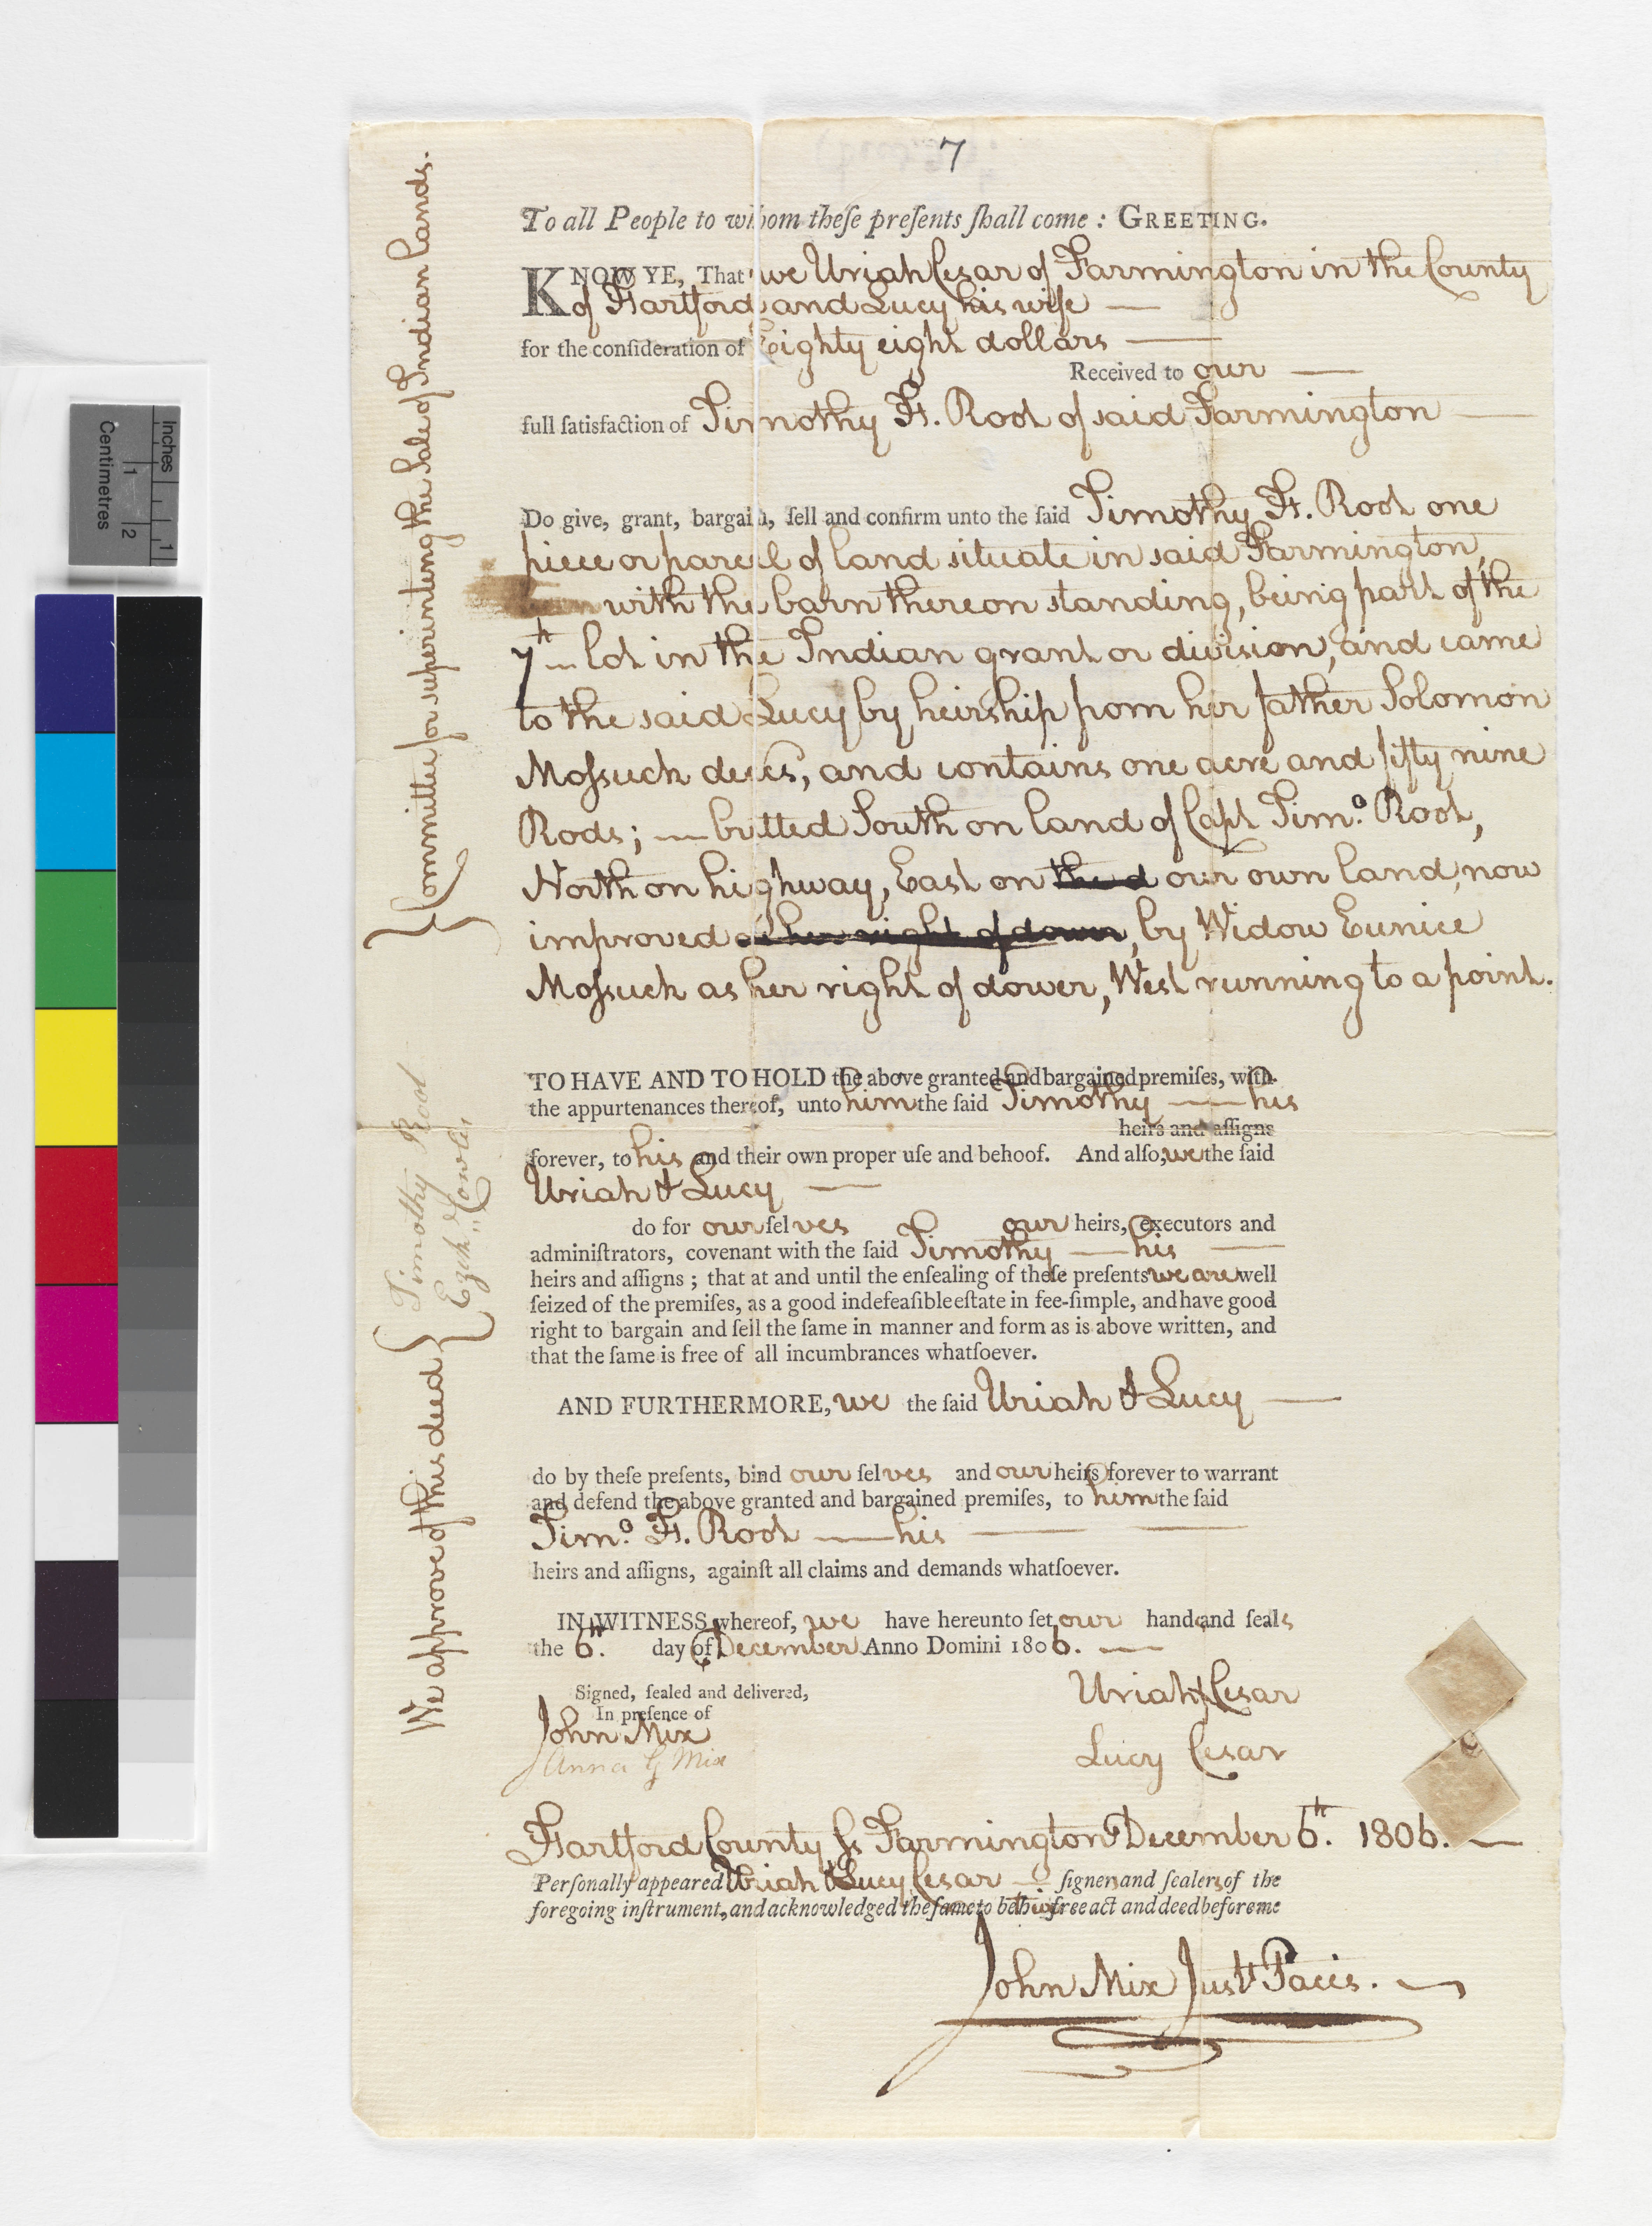 7
To all People to whom theſe preſents ſhall come : GREETING.
KNOW YE, That we Uriah Cesar of Farmington in the County
of Hartford and Lucy his wife —
for the conſideration of Eighty eight dollars —
Received to our —
full ſatisfaction of Timothy H. Root of said Farmington —
Do give, grant, bargain, ſell and confirm unto the ſaid Timothy H. Root one
piece or parcel of land situate in said Farmington,
with the barn thereon standing, being part of the
7th — lot in the Indian grant or division, and came
to the said Lucy by heirship from her father Solomon
Moſsuck decs, and contains one acre and fifty nine
Rods; — butted South on land of Capt Timo. Root,
North on highway, East on the d our own land, now
improved as her right of dower, by Widow Eunice
Moſsuck as her right of dower, West running to a point.
TO HAVE AND TO HOLD the above granted and bargained premiſes, with
the appurtenances thereof, unto him the ſaid Timothy — his
heirs and aſſigns
forever, to his and their own proper uſe and behoof. And alſo, we the ſaid
Uriah & Lucy —
do for our ſelves our heirs, executors and
adminiſtrators, covenant with the ſaid Timothy — his —
heirs and aſſigns ; that at and until the enſealing of theſe preſents we are well
ſeized of the premiſes, as a good indefeaſible eſtate in fee-ſimple, and have good
right to bargain and ſell the ſame in manner and form as is above written, and
that the ſame is free of all incumbrances whatſoever.
AND FURTHERMORE, we the ſaid Uriah & Lucy —
do by theſe preſents, bind our ſelves and our heirs forever to warrant
and defend the above granted and bargained premiſes, to him the ſaid
Timo. H. Root — his —
heirs and aſſigns, againſt all claims and demands whatſoever.
IN WITNESS whereof, we have hereunto ſet our hands and ſeals
the 6th. day of December Anno Domini 1806. —
Signed, ſealed and delivered,
In preſence of
John Mix
Anna G Mix
Uriah Cesar
Lucy Cesar
Hartford County ſs Farmington December 6th. 1806. —
Perſonally appeared Uriah & Lucy Cesar — ſigners and ſealers of the
foregoing inſtrument, and acknowledged the ſame to be their free act and deed before me
John Mix Just Pacis. —
We approve of this deed { Timothy Root
Ezek. Cowles } Committee for superintending the Sale of Indian Lands.
Inches
1
Centimetres
1 2